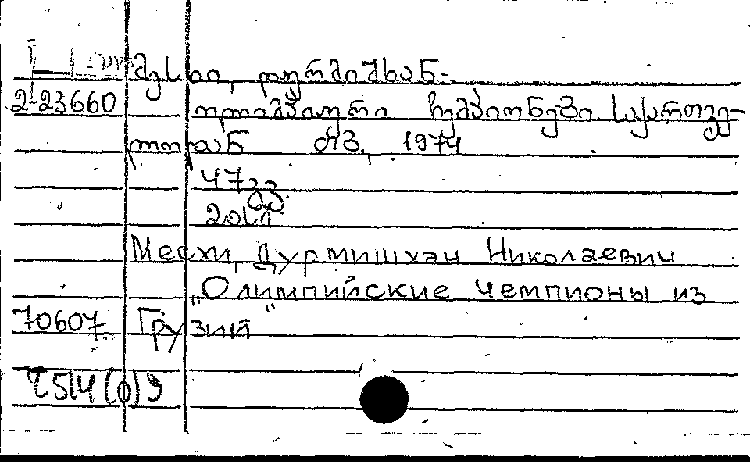 მესხი, დურმიშხან.
2-23660 ოლიმპიური ჩემპიონები საქართვე-
ლოდან თბ., 1974
47 გვ
Месхи, Дурмишхан Николаевич
„Олимпийские чемпионы из
70607 Грузии“